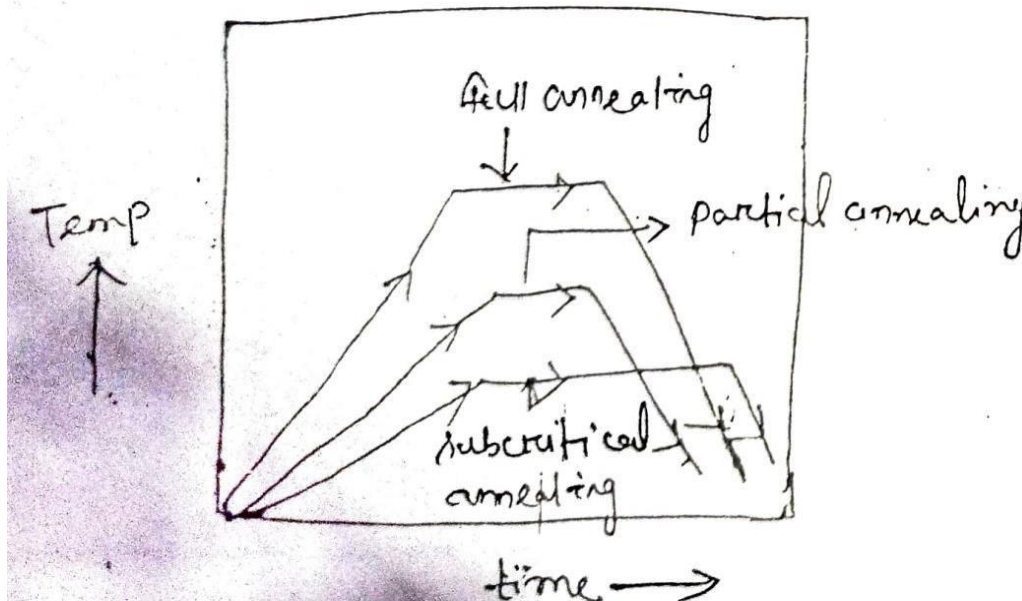 full annealing
Temp
partical annealing
subcritical
annealing
time